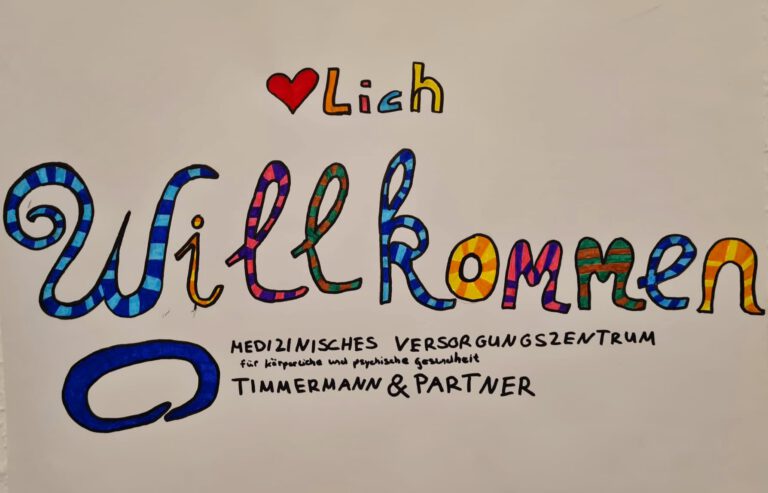 ❤Lich
Willkommen
MEDIZINISCHES VERSORGUNGSZENTRUM
für körperliche und psychische gesundheit
TIMMERMANN & PARTNER